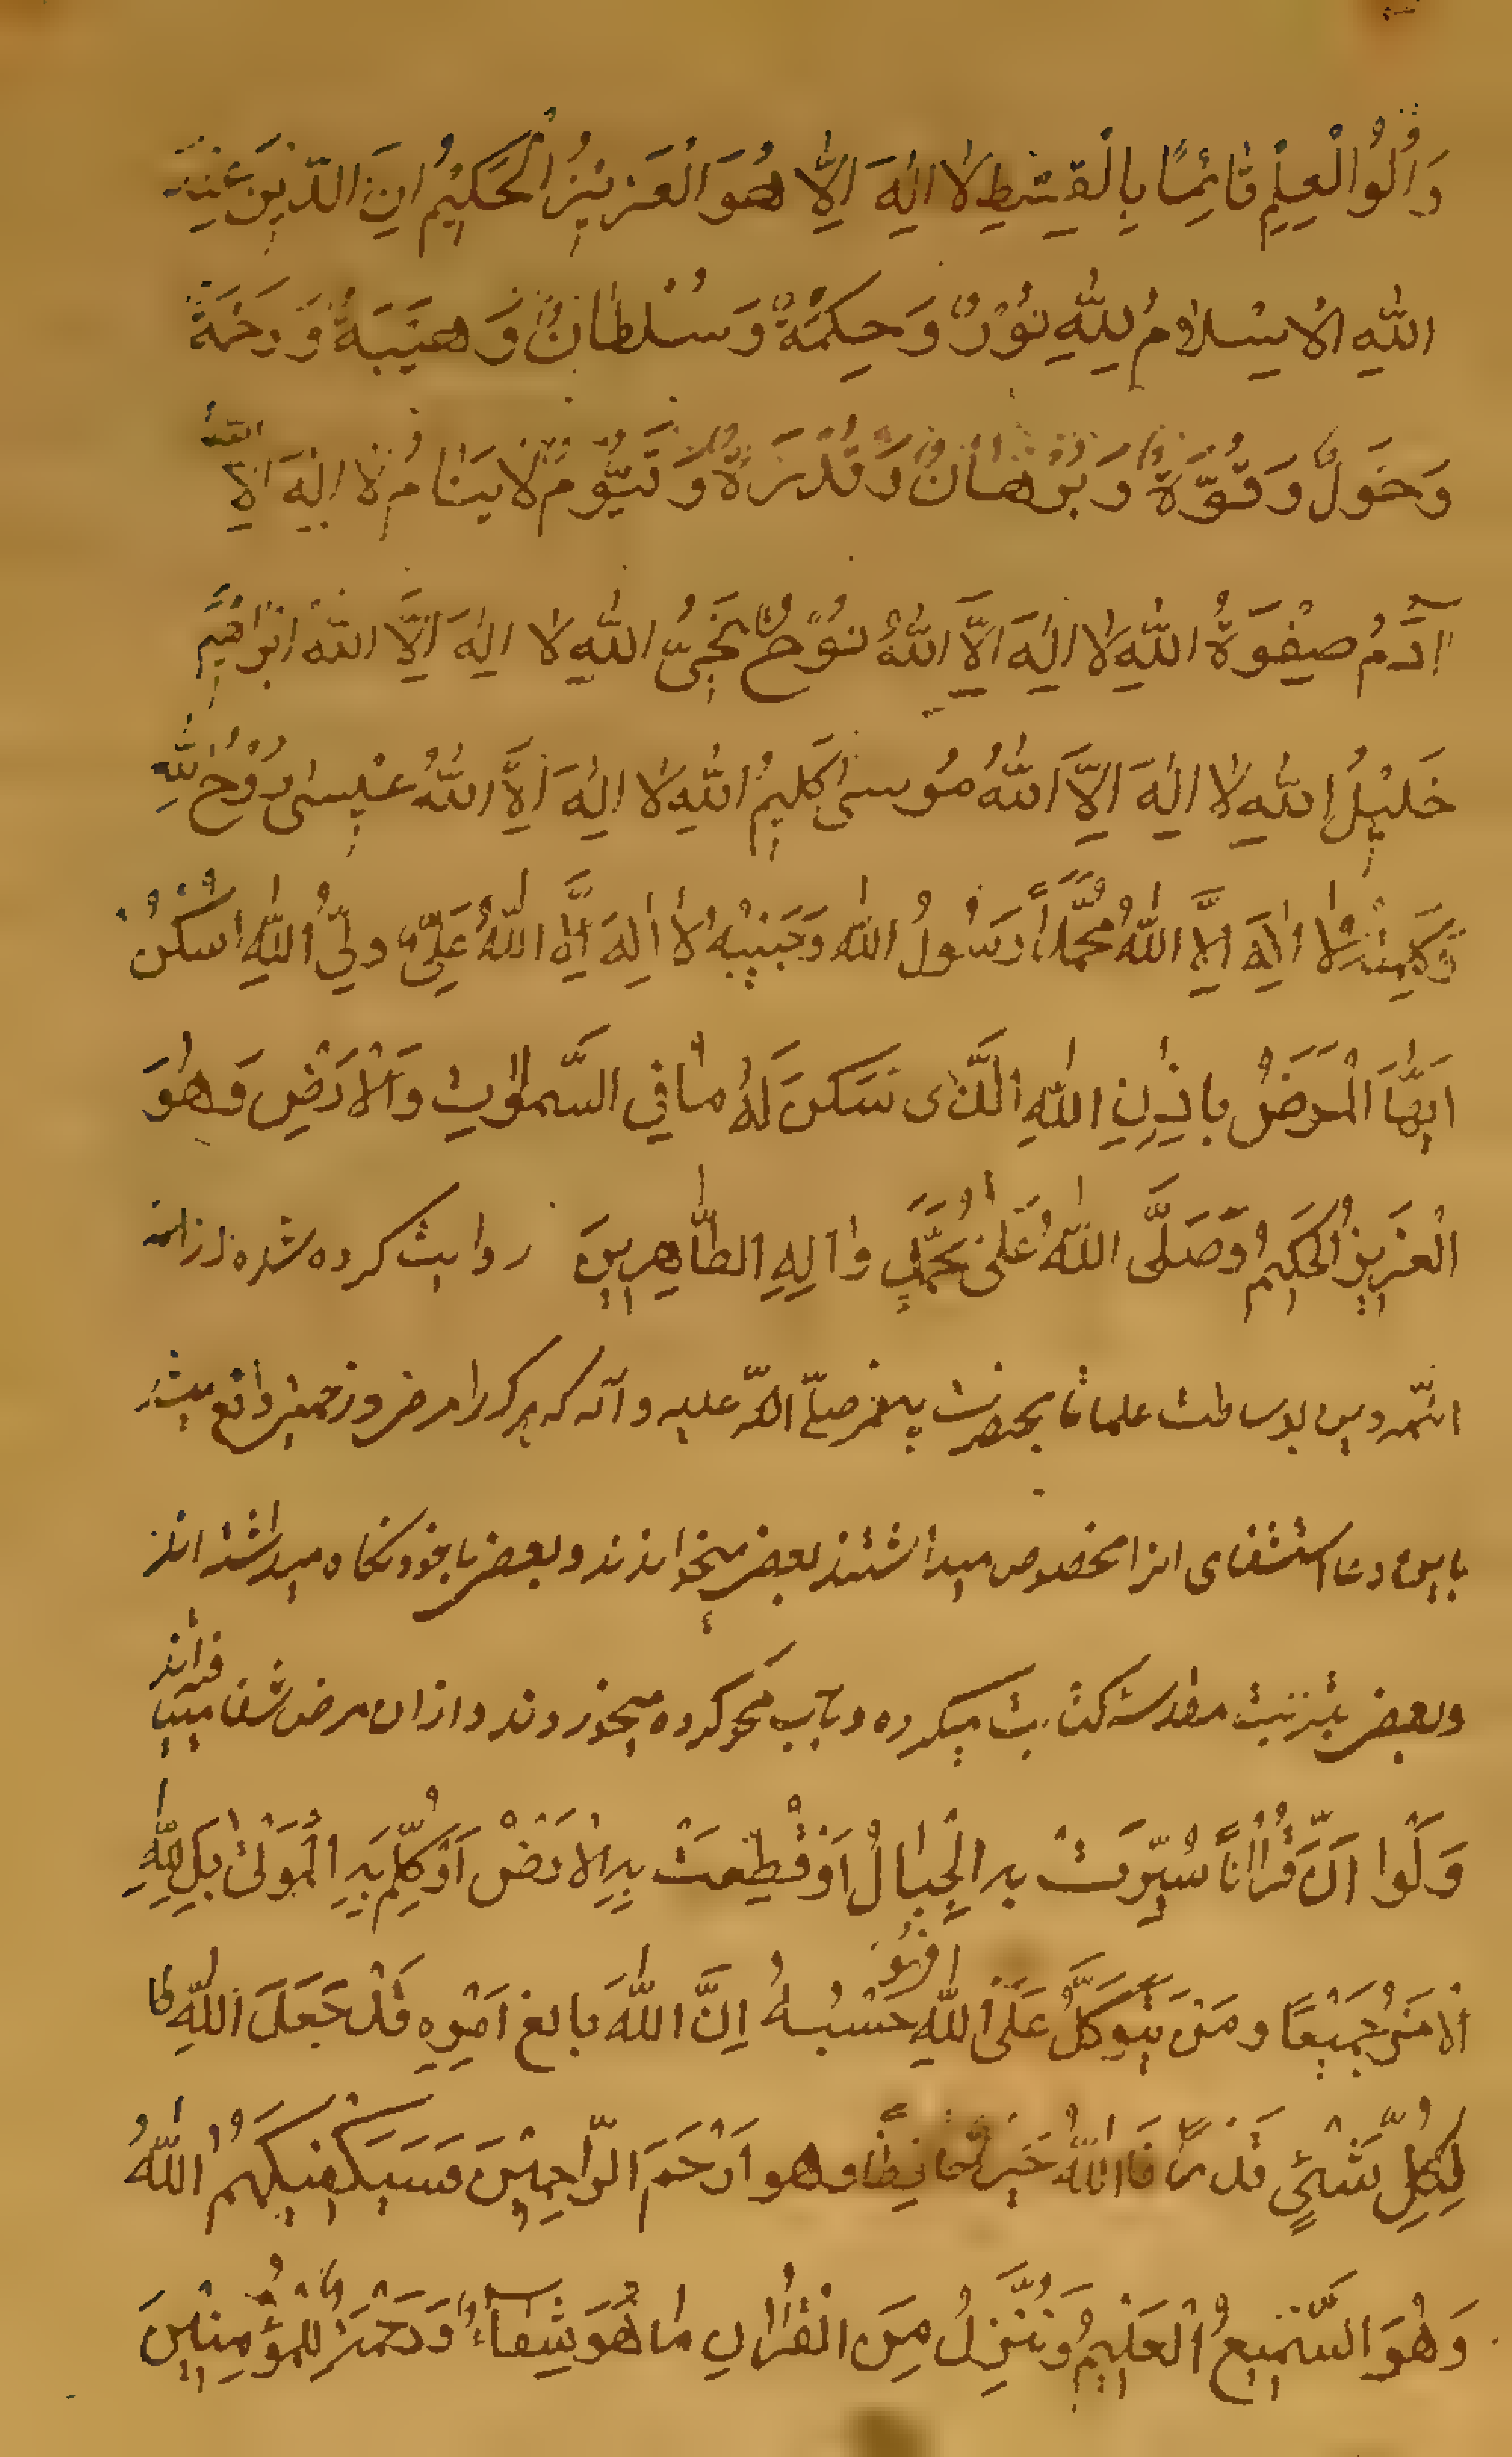 وَاُولُوا الْعِلْمِ قٰائِمًا بِالْقِسْطِ لٰا اِلٰهَ اِلّٰا هُوَ الْعَزِيْزُ الْحَكِيْمُ اِنَّ الدّيٖنَ عِنْدَ
اللّٰهِ الْاِسْلٰامُ لِلّٰهِ نُوْرٌ وَحِكْمَةٌ وَسُلْطٰانٌ وَهَيْبَةٌ وَرَحْمَةٌ
وَحَوْلٌ وَقُوَّةٌ وَبُرْهٰانٌ وَقُدْرَةٌ وَقَيُّوْمٌ لٰا يَنٰامُ لٰا اِلٰهَ اِلَّا اللّٰهُ
آدَمُ صِفْوَةُ اللّٰهِ لٰا اِلٰهَ اِلَّا اللّٰهُ نُوْحٌ نَجِىُّ اللّٰهِ لٰا اِلٰهَ اِلَّا اللّٰهُ اِبْرٰاهٖيمُ
خَليٖلُ اللّٰهِ لٰا اِلٰهَ اِلَّا اللّٰهُ مُوسىٰ كَليٖمُ اللّٰهِ لٰا اِلٰهَ اِلَّا اللّٰهُ عيٖسىٰ رُوْحُ اللّٰهِ
وَكَلِمَتُهُ لٰا اِلٰهَ اِلَّا اللّٰهُ مُحَمَّداً رَسُولُ اللّٰه وَحَبيٖبُهُ لٰا اِلٰهَ اِلَّا اللّٰهُ عَلِىٌّ ولىُّ اللّٰهِ اُسْكُنْ
اَيُّهَا الْمَرَضُ بِاِذْنِ اللّٰهِ الَّذى سَكَنَ لَهُ مٰا فِي السَّمٰوٰاتِ وَالْاَرْضِ وَهُوَ
الْعَزيٖزُ الْحَكيٖمُ وَصَلَّى اللّٰهُ عَلىٰ مُحَمَّدٍ وٰالِهِ الطّٰاهِريٖنَ روايت كرده شده از
ائمّه دين بوساطت علما تا بحضرت پيغمبر صلّى اللّه عليه و آله كه هر كرا مرض و زحمتى واقع ميشد
باين دعا استشفاى انرا مخصوص ميداشتند بعضى ميخواندند و بعضى با خود نگاه ميداشته اند
وبعضى بتربت مقدسه كتابت ميكرده و بآب محو كرده ميخوردند و ازان مرض شفا مييافته اند
وَلَوْا اَنَّ قُرْاٰناً سُيِّرَتْ بِهِ الْجِبٰالُ اَوْ قُطِّعَتْ بِهِ الْاَرْضُ اَوْ كُلِّمَ بِهِ الْمَوْتىٰ بَلْ لِلّٰهِ
الْاَمْرُ جَميٖعًا ومَنْ يَتَوَكَّلْ عَلَى اللّٰهِ فَهُوَ حَسْبُهُ اِنَّ اللّٰهَ بٰالِغُ اَمْرِهِ قَدْ جَعَلَ اللّٰهُ
لِكُلِّ شَىْءٍ قَدْرًا فَاللّٰهُ خَيْرٌ حٰافِظًا وهو اَرْحَمُ الرّٰاحِميٖنَ فَسَيَكْفيٖكَهُمُ اللّٰهُ
وَهُوَ السَّميٖعُ الْعَليٖمُ وَنُنَزِّلُ مِنَ الْقُرْاٰنِ مٰا هُوَ شِفٰاءٌ وَرَحْمَةٌ لِلْمُؤْمِنيٖنَ